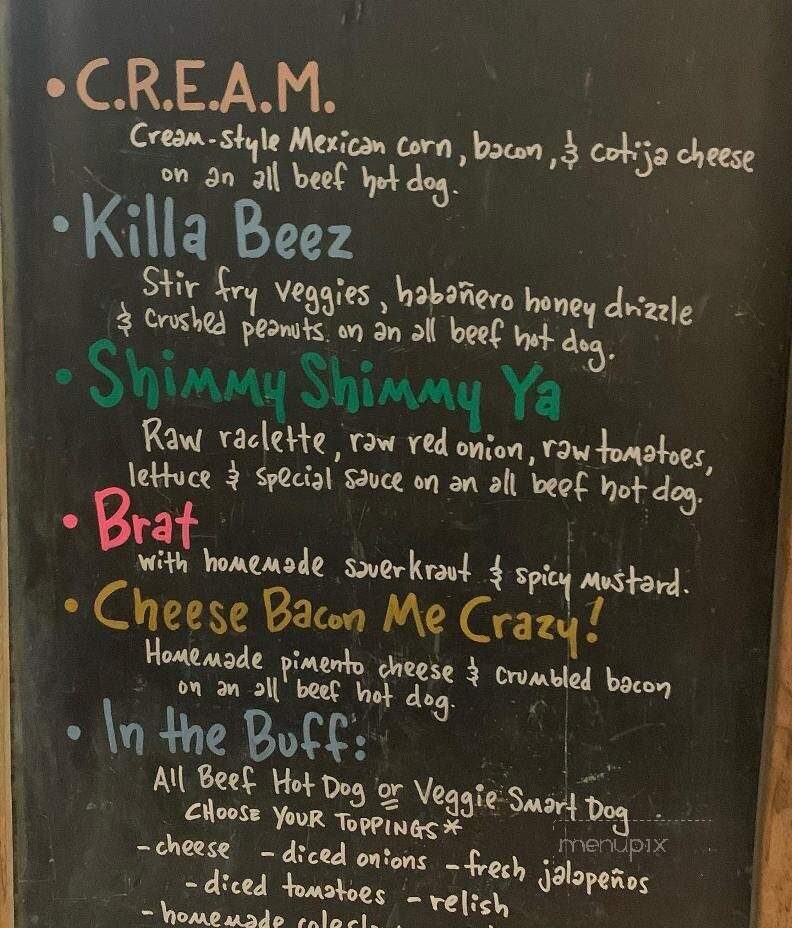 • C.R.E.A.M.
Cream-style Mexican corn, bacon, & cotija cheese
on an all beef hot dog.
• Killa Beez
Stir fry veggies, habañero honey drizzle
& crushed peanuts on an all beef hot dog.
• Shimmy Shimmy Ya
Raw raclette, raw red onion, raw tomatoes,
lettuce & special sauce on an all beef hot dog.
• Brat
with homemade sauerkraut & spicy mustard.
• Cheese Bacon Me Crazy!
Homemade pimento cheese & crumbled bacon
on an all beef hot dog.
• In the Buff:
All Beef Hot Dog or Veggie Smart Dog
CHOOSE YOUR TOPPINGS*
- cheese - diced onions - fresh jalapeños
- diced tomatoes - relish
- homemade
menupix